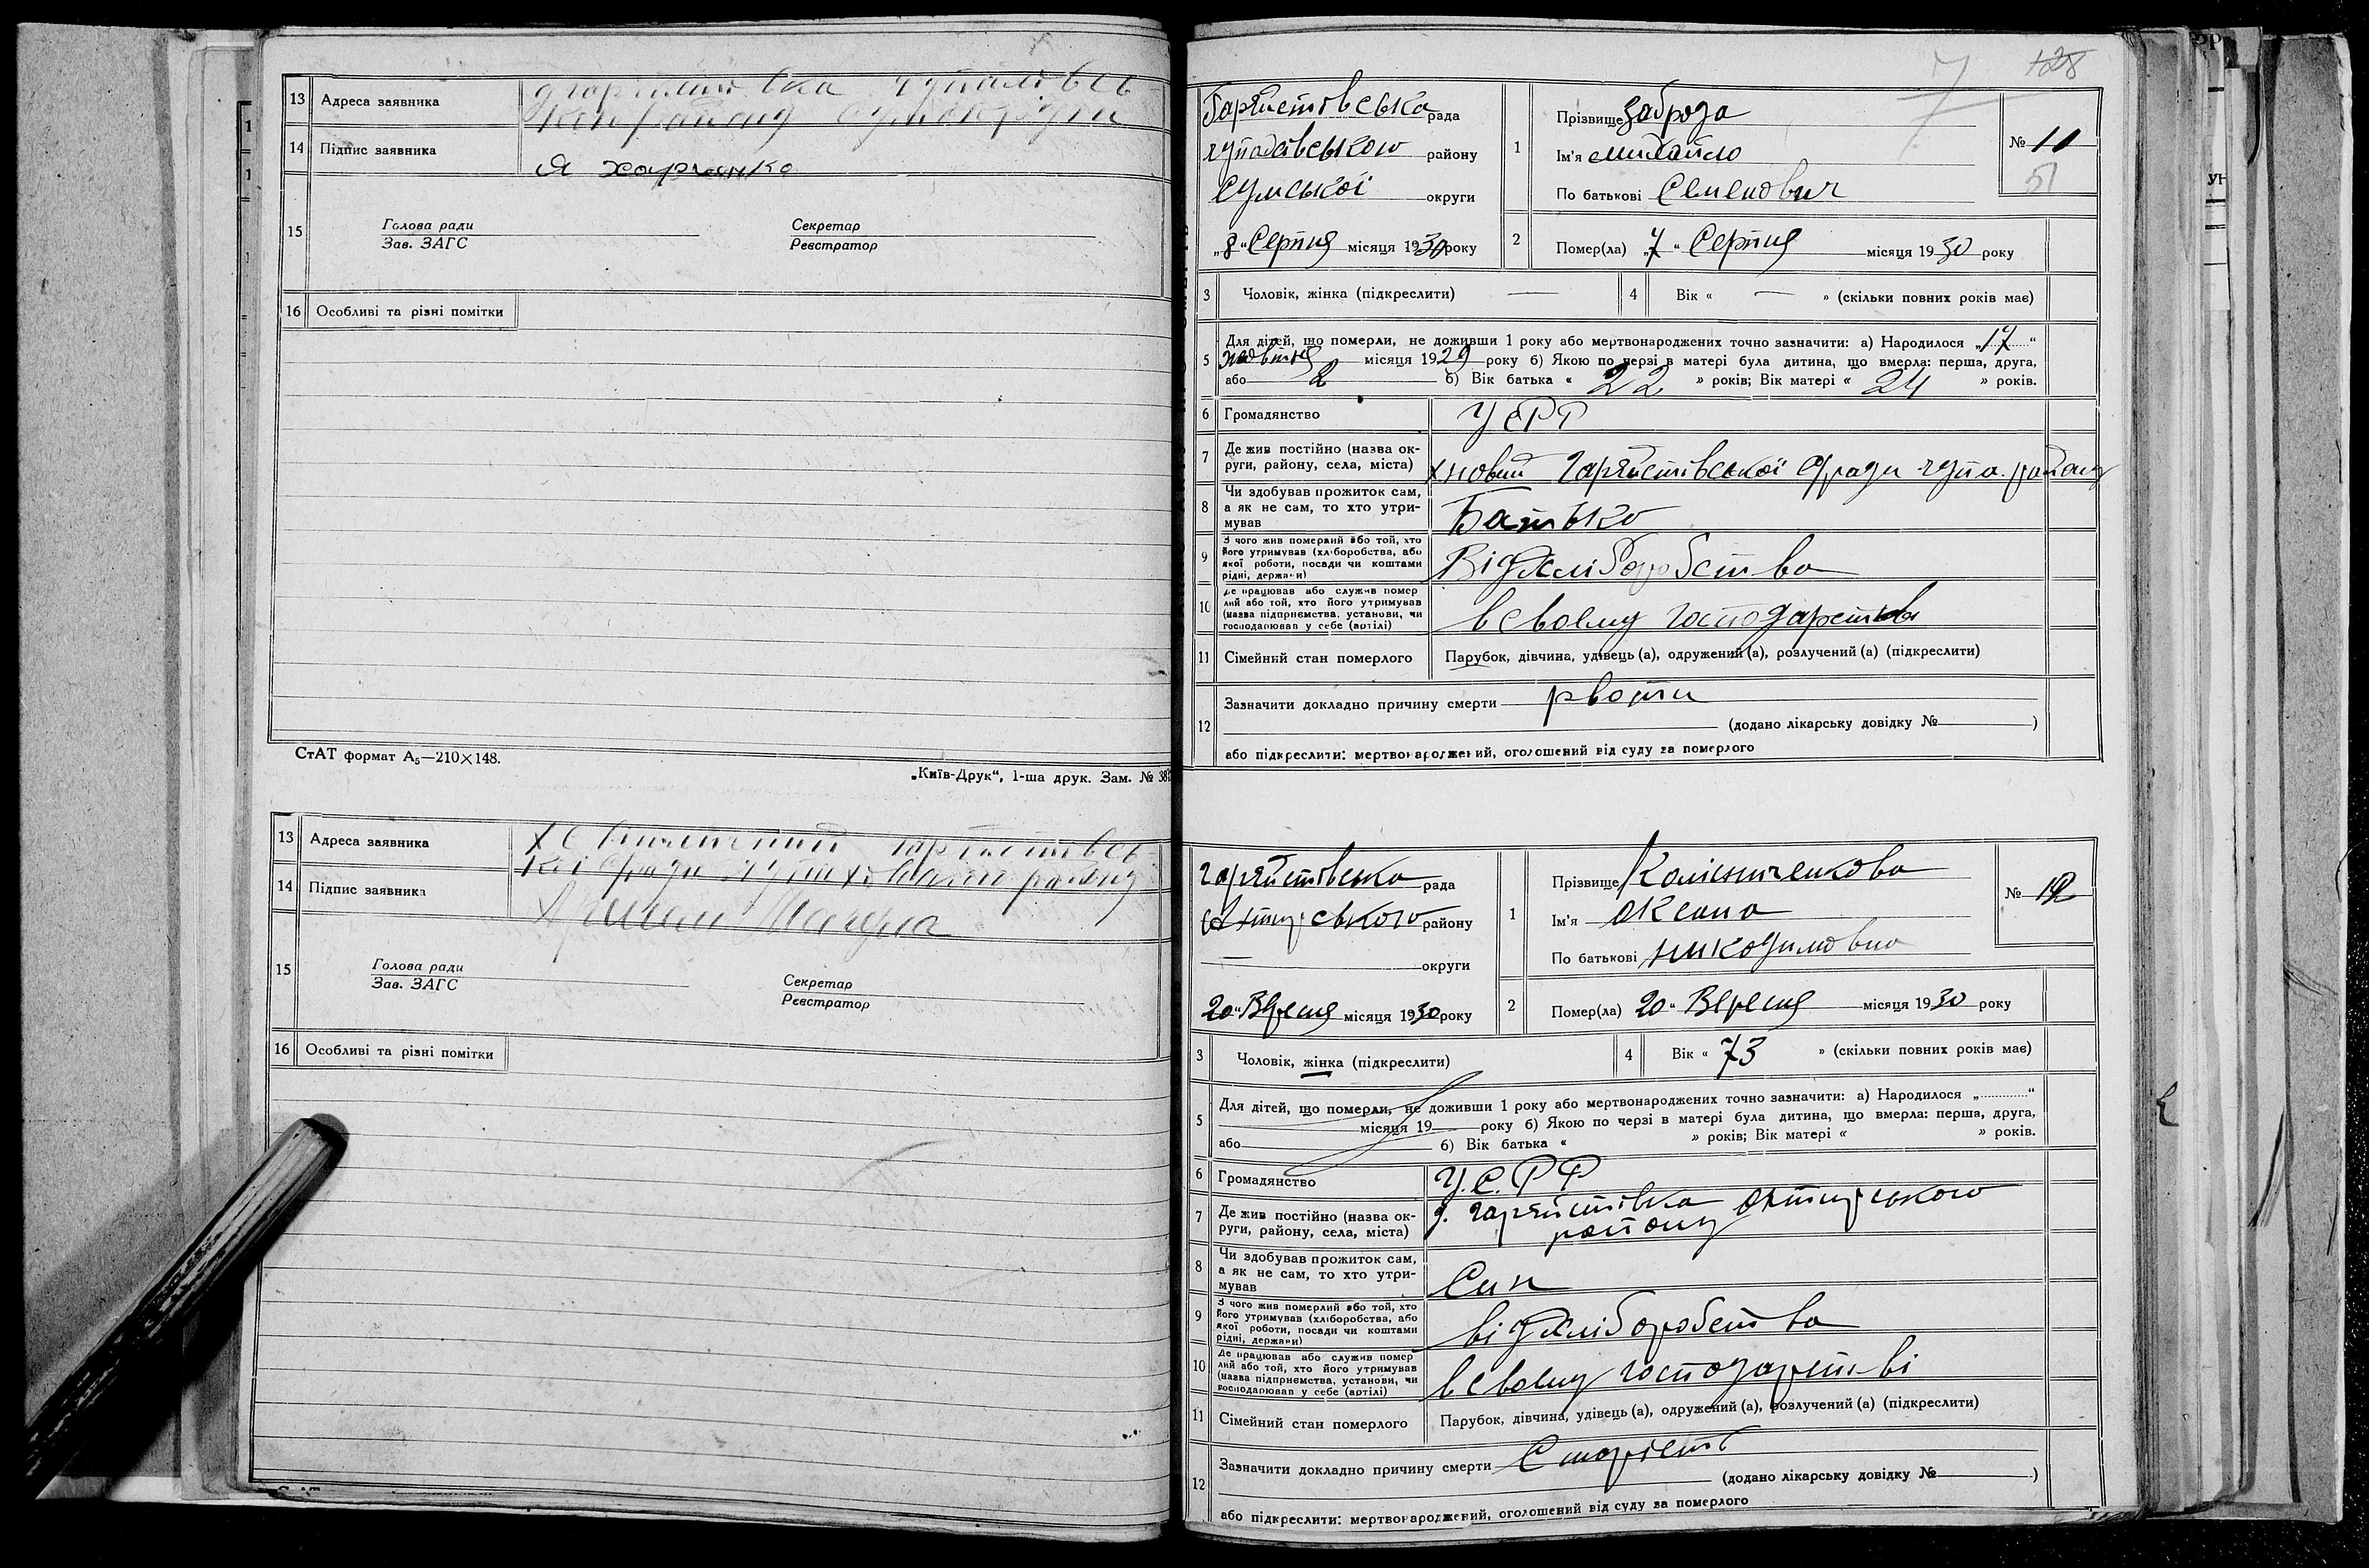 13 Адреса заявника
14 Підпис заявника Я Харченко
15 Голова ради
Зав. ЗАГС
Секретар
Реєстратор
16 Особливі та різні помітки
СтАТ формат А5—210×148.
„Київ-Друк“, 1-ша друк. Зам. № 38
13 Адреса заявника
14 Підпис заявника
15 Голова ради
Зав. ЗАГС
Секретар
Реєстратор
16 Особливі та різні помітки
128
7
рада
району
Сумської округи
„8“ Серпня місяця 1930 року
1 Прізвище Заброза
Ім'я Михайло
По батькові Семенович
№ 11
51
2 Помер(ла) „7“ Серпня місяця 1930 року
3 Чоловік, жінка (підкреслити) —
4 Вік « — » (скільки повних років має)
5 Для дітей, що померли, не доживши 1 року або мертвонароджених точно зазначити: а) Народилося „17“
Жовтня місяця 1929 року б) Якою по черзі в матері була дитина, що вмерла: перша, друга,
або 2 б) Вік батька « 22 » років; Вік матері « 24 » років.
6 Громадянство УСРР
7 Де жив постійно (назва ок-
руги, району, села, міста)
8 Чи здобував прожиток сам,
а як не сам, то хто утри-
мував Батько
9 З чого жив померлий або той, хто
його утримував (хліборобства, або
якої роботи, посади чи коштами
рідні, держави) Від Хліборобства
10 Де працював або служив помер
лий або той, хто його утримував
(назва підприємства, установи, чи
господарював у себе (артілі) в своєму господарстві
11 Сімейний стан померлого Парубок, дівчина, удівець (а), одружений (а), розлучений (а) (підкреслити)
12 Зазначити докладно причину смерти рвота
(додано лікарську довідку № )
або підкреслити: мертвонароджений, оголошений від суду за померлого
рада
району
— округи
„20“ Вересня місяця 1930 року
1 Прізвище Колісниченкова
Ім'я Оксана
По батькові Никодимовна
№ 12
2 Помер(ла) 20“ Вересня місяця 1930 року
3 Чоловік, жінка (підкреслити)
4 Вік « 73 » (скільки повних років має)
5 Для дітей, що померли, не доживши 1 року або мертвонароджених точно зазначити: а) Народилося „ “
місяця 19 року б) Якою по черзі в матері була дитина, що вмерла: перша, друга,
або б) Вік батька « » років; Вік матері « » років.
6 Громадянство У.С.Р.Р
7 Де жив постійно (назва ок-
руги, району, села, міста) району
8 Чи здобував прожиток сам,
а як не сам, то хто утри-
мував Син
9 З чого жив померлий або той, хто
його утримував (хліборобства, або
якої роботи, посади чи коштами
рідні, держави) від Хліборобства
10 Де працював або служив помер
лий або той, хто його утримував
(назва підприємства, установи, чи
господарював у себе (артілі) в своєму господарстві
11 Сімейний стан померлого Парубок, дівчина, удівець (а), одружений (а), розлучений (а) (підкреслити)
12 Зазначити докладно причину смерти Старість
(додано лікарську довідку № )
або підкреслити: мертвонароджений, оголошений від суду за померлого